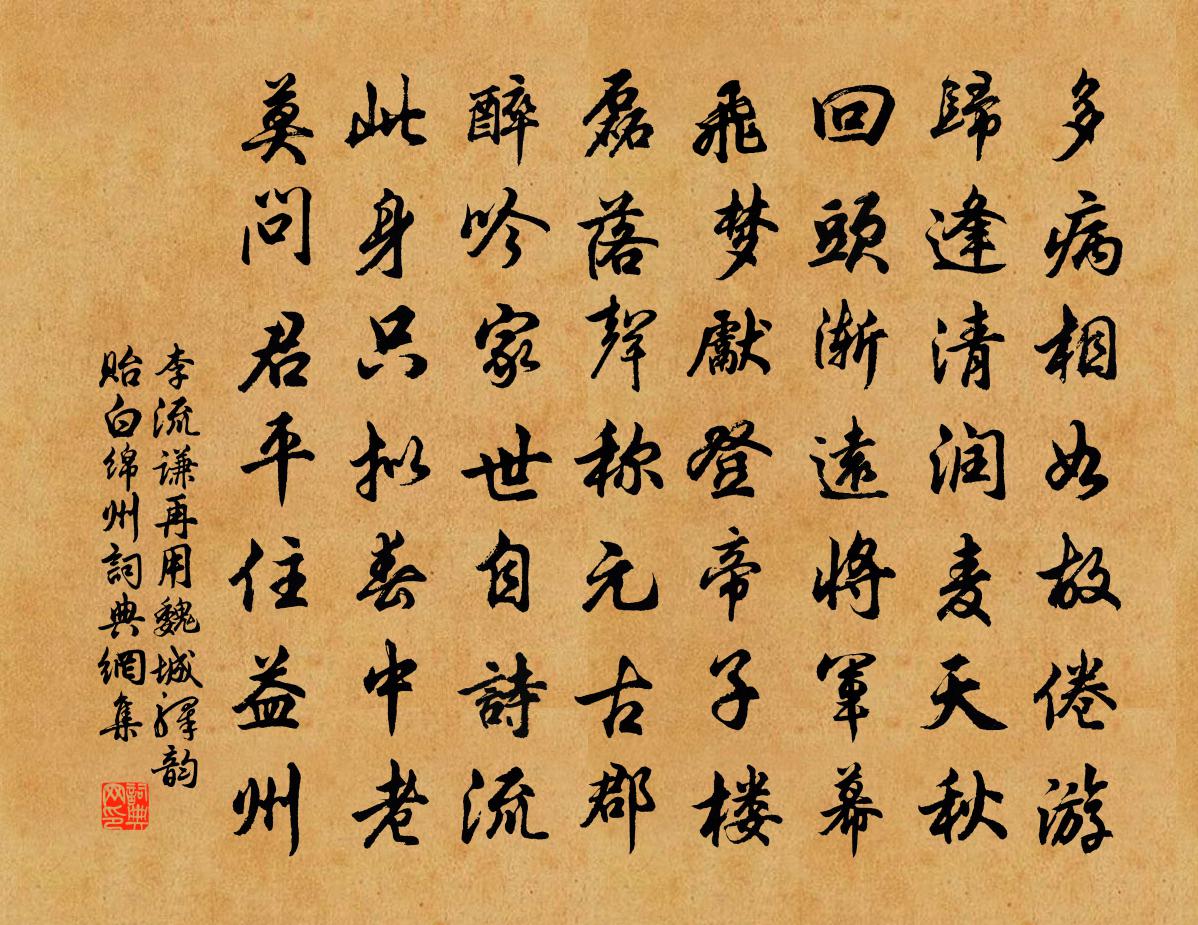 多病相如故倦游
歸逢清润麦天秋
回頭渐遠將軍幕
飛梦獻登帝子楼
磊落聲称元古郡
醉吟家世自詩流
此身只拟春中老
莫問君平住益州
李流谦再用魏城驛韵
贻白绵州詞典網集
詞典网印